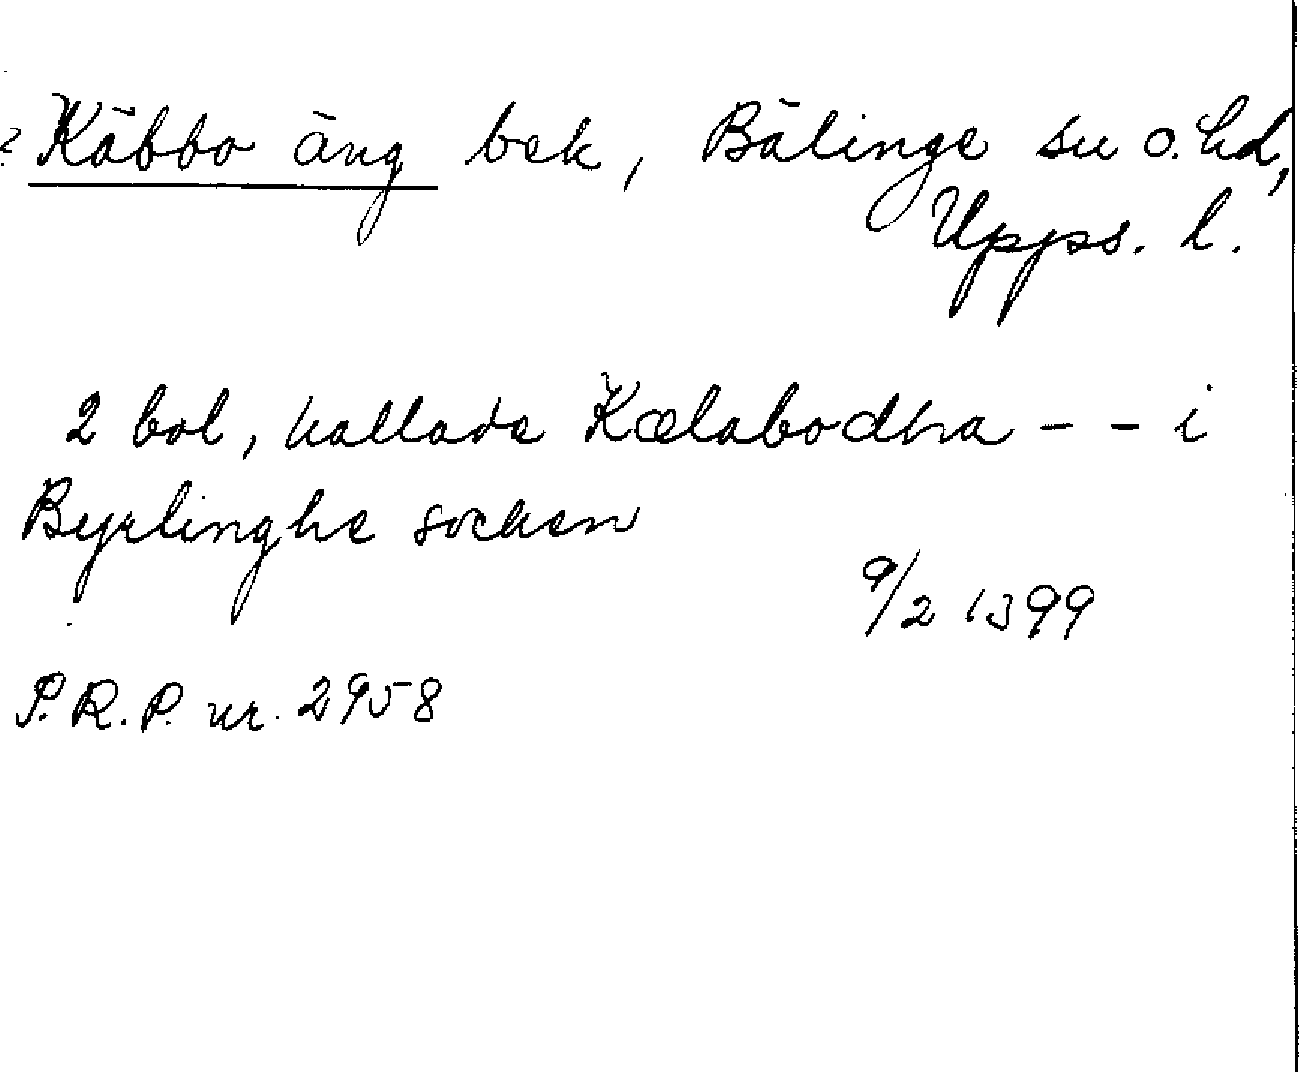 ? Käbbo äng bek, Bälinge sn o. hd,
Upps. l.
2 bol, kallade Kælabodha - - i
Byrlinghe socken
9/2 1399
P.R.P. nr. 2958